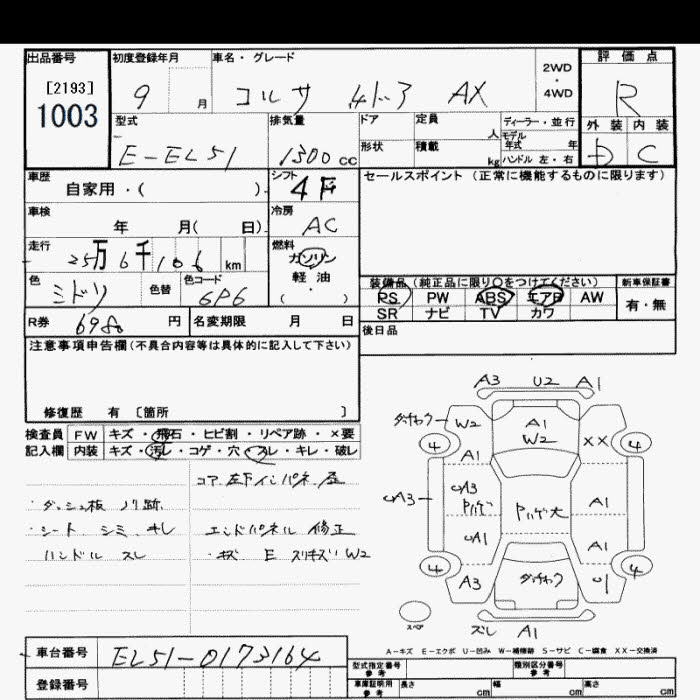 出品番号 初度登録年月 車名・グレード 2WD・4WD 評価点
[2193] 1003 9 月 コルサ 4ドア AX R
型式 排気量 ドア 定員 人 ディーラー・並行 外装 内装
E-EL51 1300cc 形状 積載 kg モデル年式 年 ハンドル 左・右 D C
車歴 シフト セールスポイント (正常に機能するものに限ります)
自家用・( ) 4F
車検 冷房
年 月( 日) AC
走行 燃料
25万6千106 km ガソリン
色 色替 色コード 軽油
ミドリ 6P6 ( ・ )
装備品(純正品に限り○をつけてください) 新車保証書
PS PW ABS エアB AW 有・無
SR ナビ TV カワ
R券 6980 円 名変期限 月 日
後日品
注意事項申告欄(不具合内容等は具体的に記入して下さい)
修復歴 有 [箇所 ]
検査員 FW キズ・飛石・ヒビ割・リペア跡・×要
記入欄 内装 キズ・汚レ・コゲ・穴・スレ・キレ・破レ
・ダッシュ板 ノリ跡
・シート シミ キレ
ハンドル スレ
コア左下インパネ
エンドパネル 修正
・キズ E スリキズ W2
A3 U2 A1
W2 A1 W2 XX
4 4
A1
A3 A3 Pハゲ Pハゲ大 A1
A1 A1
4 4
A3
A1
スペア
A-キズ E-エクボ U-凹み W-補修跡 S-サビ C-腐食 XX-交換済
車台番号 EL51-0173164
登録番号
型式指定番号 参考 類別区分番号 参考
車庫証明用 参考 長さ cm 幅 cm 高さ cm